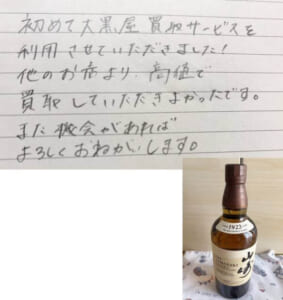 初めて大黒屋 買取サービスを
利用させていただきました!
他のお店より、高値で
買取していただきよかったです。
また機会があれば
よろしくおねがいします。
山崎